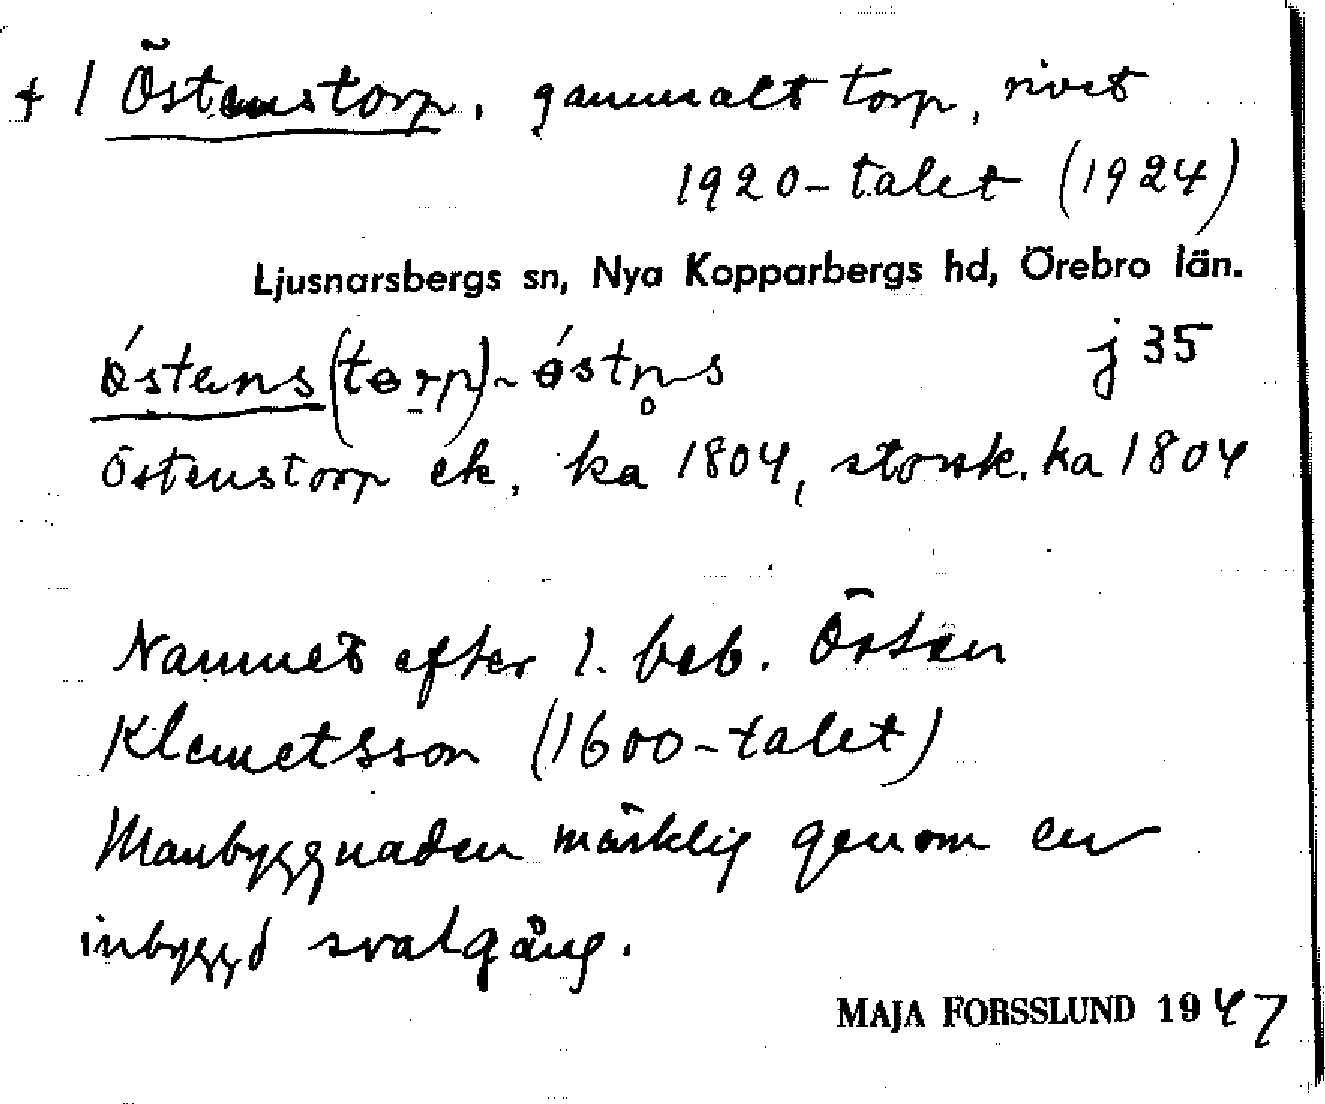 † / Östenstorp, gammalt torp, rivet
1920-talet (1924)
Ljusnarsbergs sn, Nya Kopparbergs hd, Örebro län.
östens (torp) ~ östn̥s j 35
Östenstorp ek. ka 1804, storsk. ka 1804
Namnet efter 1. beb. Östen
Klemetsson (1600-talet)
Manbyggnaden märklig genom en
inbyggd svalgång.
MAJA FORSSLUND 1947